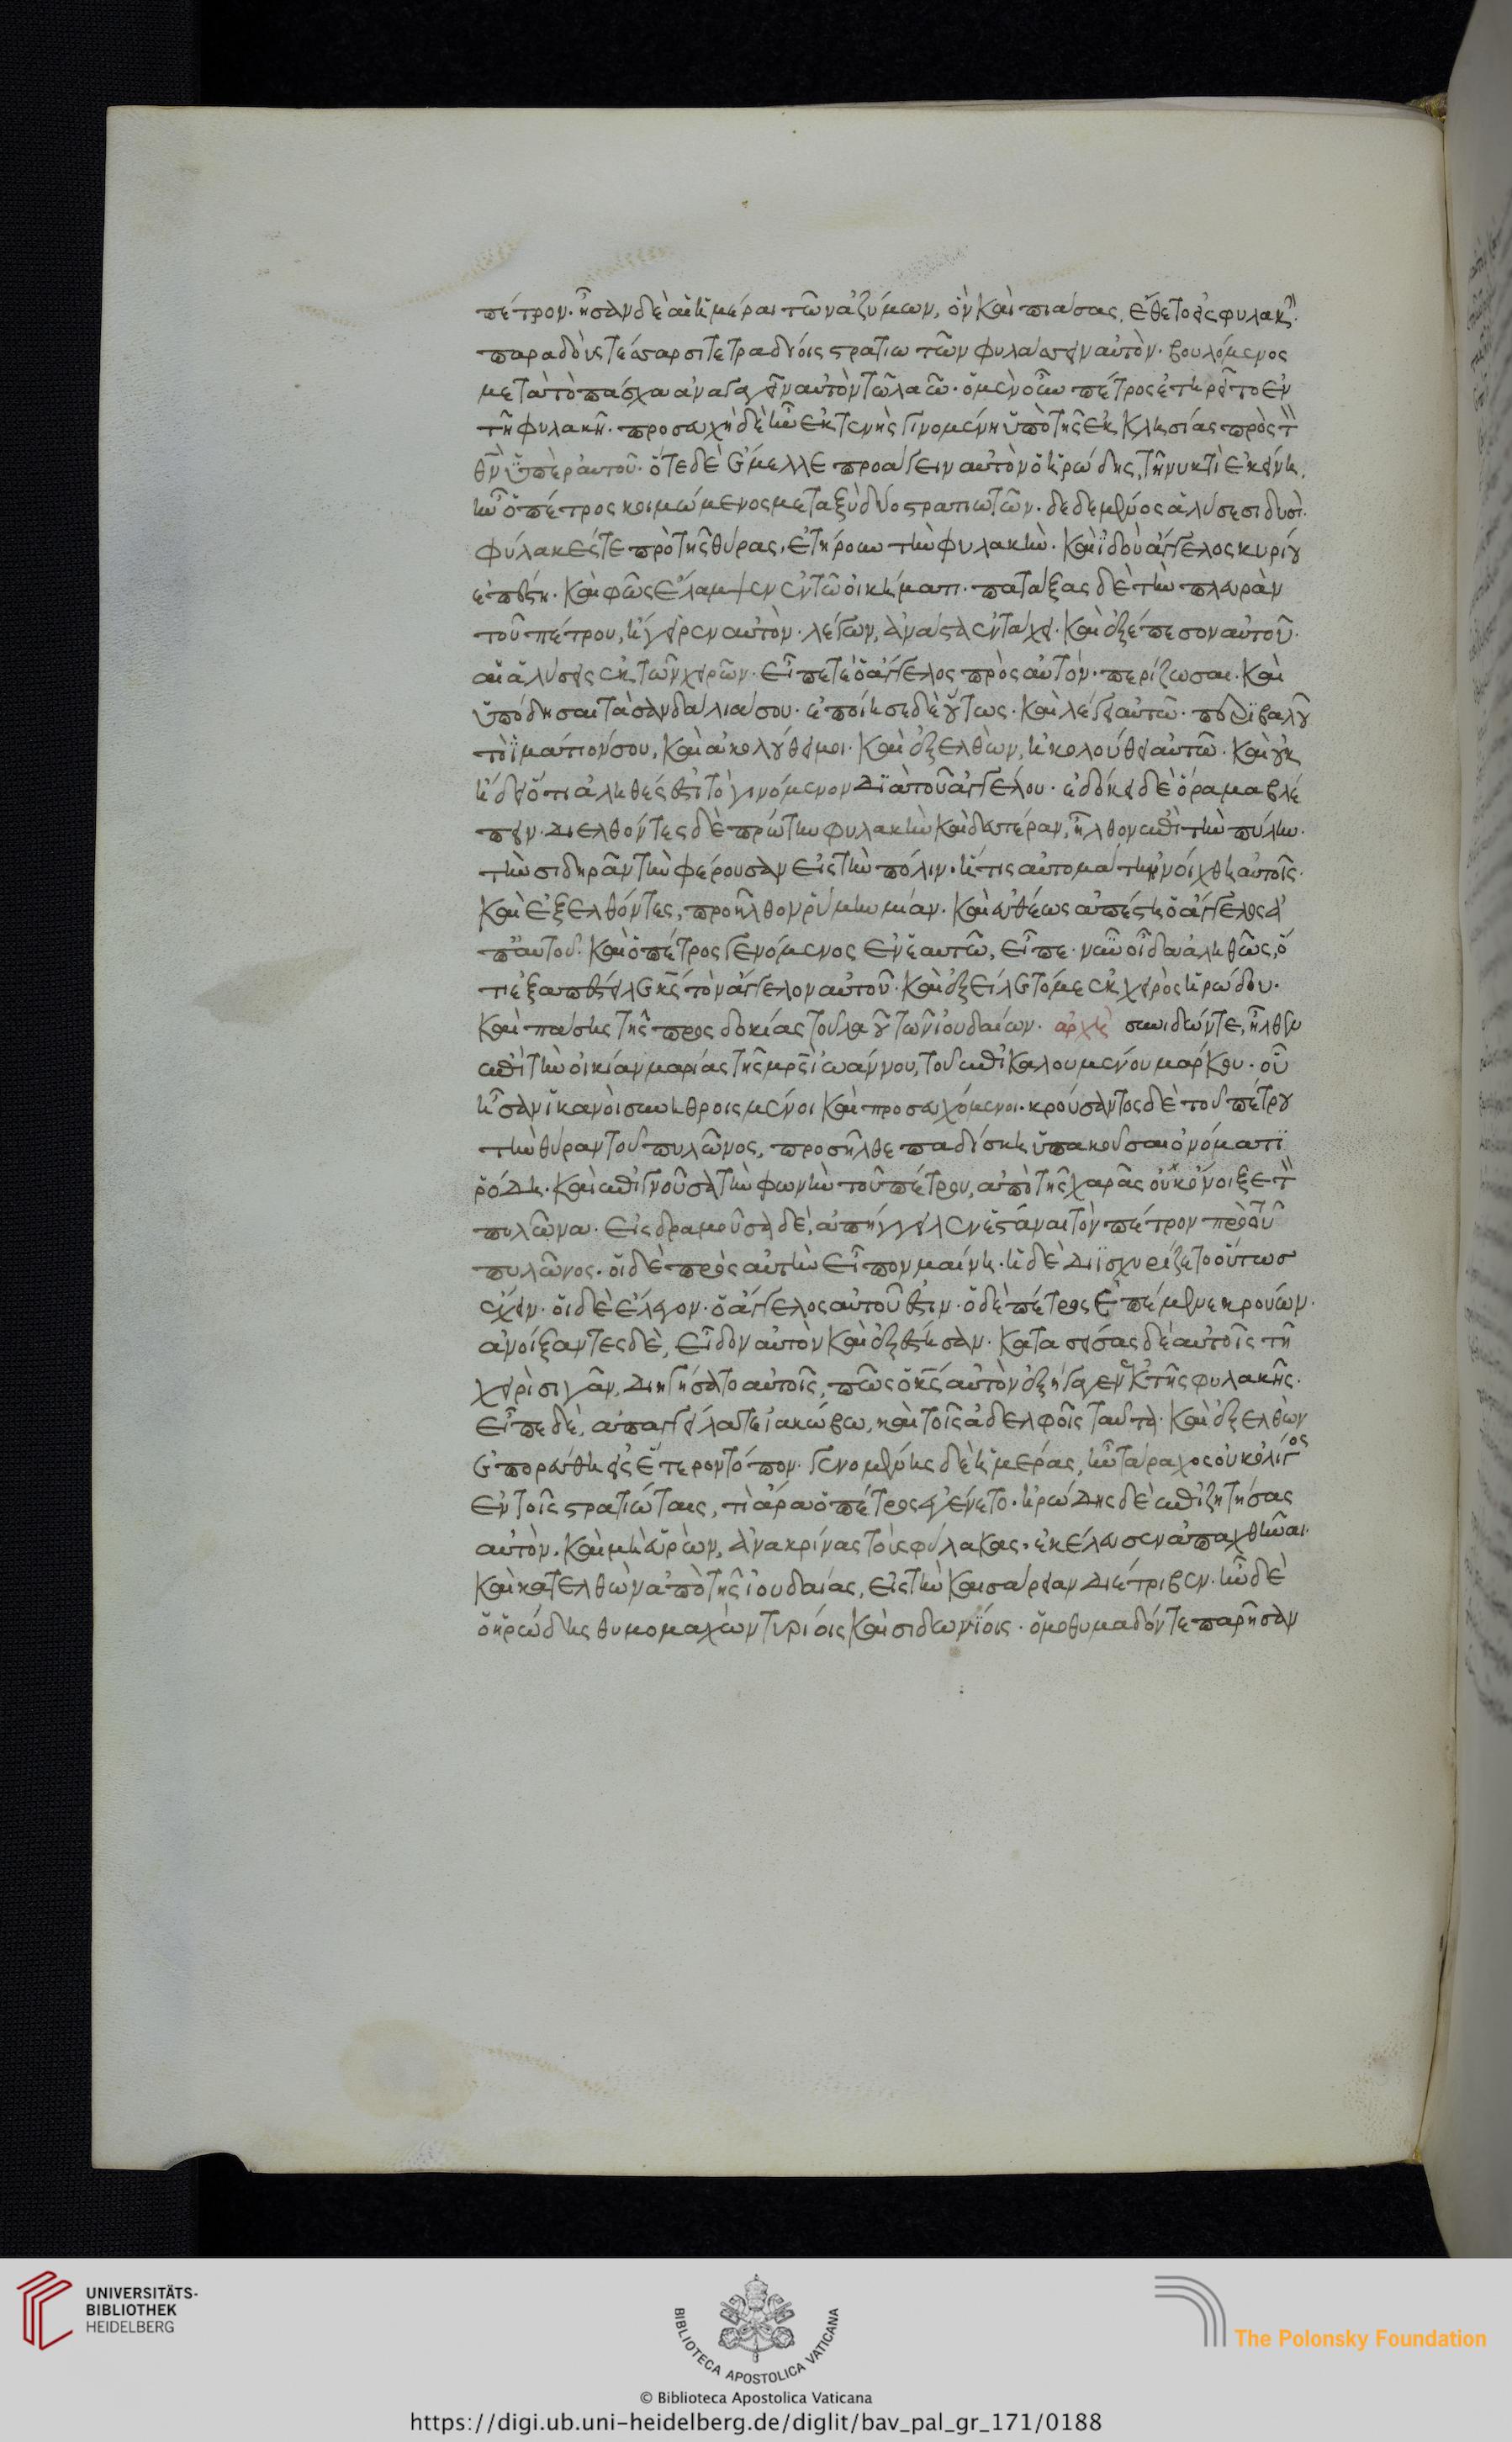 πέτρον· ἦσαν δὲ αἱ ἡμέραι τῶν ἀζύμων, ὃν καὶ πιάσας, ἔθετο εἰς φυλακ̑·
παραδοὺς τέσσαρσι τετραδίοις στρατιω τῶν φυλάσσειν αὐτὸν· βουλόμενος
μετὰ τὸ πάσχα ἀναγαγεῖν αὐτὸν τῶ λαῶ· ὁ μὲν οὖν πέτρος ἐτηρεῖτο ἐν
τῆ φυλακῆ· προσευχὴ δὲ ἦν ἐκτενὴς γινομένη ὑπὸ τῆς ἐκκλησίας πρὸς τ̀
θν̄ ὑπὲρ αὐτοῦ· ὅτε δὲ ἔμελλε προάγειν αὐτὸν ὁ ἡρώδης, τῆ νυκτὶ ἐκείνη,
ἦν ὁ πέτρος κοιμώμενος μεταξὺ δύο στρατιωτῶν· δεδεμένος ἁλύσεσι δυσὶ·
φύλακές τε πρὸ τῆς θύρας, ἐτήρουν τὴν φυλακὴν· καὶ ἰδοὺ ἄγγελος κυρίου
ἐπέστη· καὶ φῶς ἔλαμψεν ἐν τῶ οἰκήματι· πατάξας δὲ τὴν πλευρὰν
τοῦ πέτρου, ἤγειρεν αὐτὸν· λέγων, ἀνάστα ἐν τάχει· καὶ ἐξέπεσον αὐτοῦ·
αἱ ἁλύσεις ἐκ τῶν χειρῶν· εἶπέ τε ὁ ἄγγελος πρὸς αὐτόν· περίζωσαι· καὶ
ὑπόδησαι τὰ σανδάλιά σου· ἐποίησε δὲ οὕτως· καὶ λέγει αὐτῶ· περιβαλοῦ
τὸ ἱμάτιόν σου, καὶ ἀκολούθει μοι· καὶ ἐξελθὼν, ἠκολούθει αὐτῶ· καὶ οὐκ
ἤδει ὅτι ἀληθές ἐστι τὸ γινόμενον διὰ τοῦ ἀγγέλου· ἐδόκει δὲ ὅραμα βλέ
πειν· διελθόντες δὲ πρώτην φυλακὴν καὶ δευτέραν, ἦλθον ἐπὶ τὴν πύλην·
τὴν σιδηρᾶν τὴν φέρουσαν εἰς τὴν πόλιν· ἥτις αὐτομάτη ἠνοίχθη αὐτοῖς·
καὶ ἐξελθόντες, προῆλθον ῥύμην μίαν· καὶ εὐθέως ἀπέστη ὁ ἄγγελος ἀ
π' αὐτοῦ· καὶ ὁ πέτρος γενόμενος ἐν ἑαυτῶ, εἶπε· νῦν οἶδα ἀληθῶς, ὅ
τι ἐξαπέστειλε κς̄ τὸν ἄγγελον αὐτοῦ· καὶ ἐξείλετό με ἐκ χειρὸς ἡρώδου·
καὶ πάσης τῆς προσδοκίας τοῦ λαοῦ τῶν ἰουδαίων· ἀρχὴ συνιδών τε, ἦλθεν
ἐπὶ τὴν οἰκίαν μαρίας τῆς μρ̄ς ἰωάννου, τοῦ ἐπικαλουμένου μάρκου· οὗ
ἦσαν ἱκανοὶ συνηθροισμένοι καὶ προσευχόμενοι· κρούσαντος δὲ τοῦ πέτρου
τὴν θύραν τοῦ πυλῶνος, προσῆλθε παιδίσκη ὑπακοῦσαι ὀνόματι
ῥόδη· καὶ ἐπιγνοῦσα τὴν φωνὴν τοῦ πέτρου, ἀπὸ τῆς χαρᾶς οὐκ ἤνοιξε τ̀
πυλῶνα· εἰσδραμοῦσα δὲ, ἀπήγγειλεν ἑστάναι τὸν πέτρον πρὸ τοῦ
πυλῶνος· οἱ δὲ πρὸς αὐτὴν εἶπον μαίνη· ἡ δὲ διϊσχυρίζετο οὕτως
ἔχειν· οἱ δὲ ἔλεγον· ὁ ἄγγελος αὐτοῦ ἐστιν· ὁ δὲ πέτρος ἐπέμενε κρούων·
ἀνοίξαντες δὲ, εἶδον αὐτὸν καὶ ἐξέστησαν· κατασείσας δὲ αὐτοῖς τῆ
χειρὶ σιγᾶν, διηγήσατο αὐτοῖς, πῶς ὁ κς̄ αὐτὸν ἐξήγαγεν ἐκ τῆς φυλακῆς·
εἶπε δὲ, ἀπαγγείλατε ἰακώβω, καὶ τοῖς ἀδελφοῖς ταῦτα· καὶ ἐξελθὼν
ἐπορεύθη εἰς ἕτερον τόπον· γενομένης δὲ ἡμέρας, ἦν τάραχος οὐκ ὀλίγος
ἐν τοῖς στρατιώταις, τί ἄρα ὁ πέτρος ἐγένετο· ἡρώδης δὲ ἐπιζητήσας
αὐτὸν, καὶ μὴ εὑρὼν, ἀνακρίνας τοὺς φύλακας, ἐκέλευσεν ἀπαχθῆναι·
καὶ κατελθὼν ἀπὸ τῆς ἰουδαίας, εἰς τὴν καισάρειαν διέτριβεν· ἦν δὲ
ὁ ἡρώδης θυμομαχῶν τυρίοις καὶ σιδωνίοις· ὁμοθυμαδόν τε παρῆσαν
UNIVERSITÄTS-
BIBLIOTHEK
HEIDELBERG
BIBLIOTECA APOSTOLICA VATICANA
The Polonsky Foundation
© Biblioteca Apostolica Vaticana
https://digi.ub.uni-heidelberg.de/diglit/bav_pal_gr_171/0188